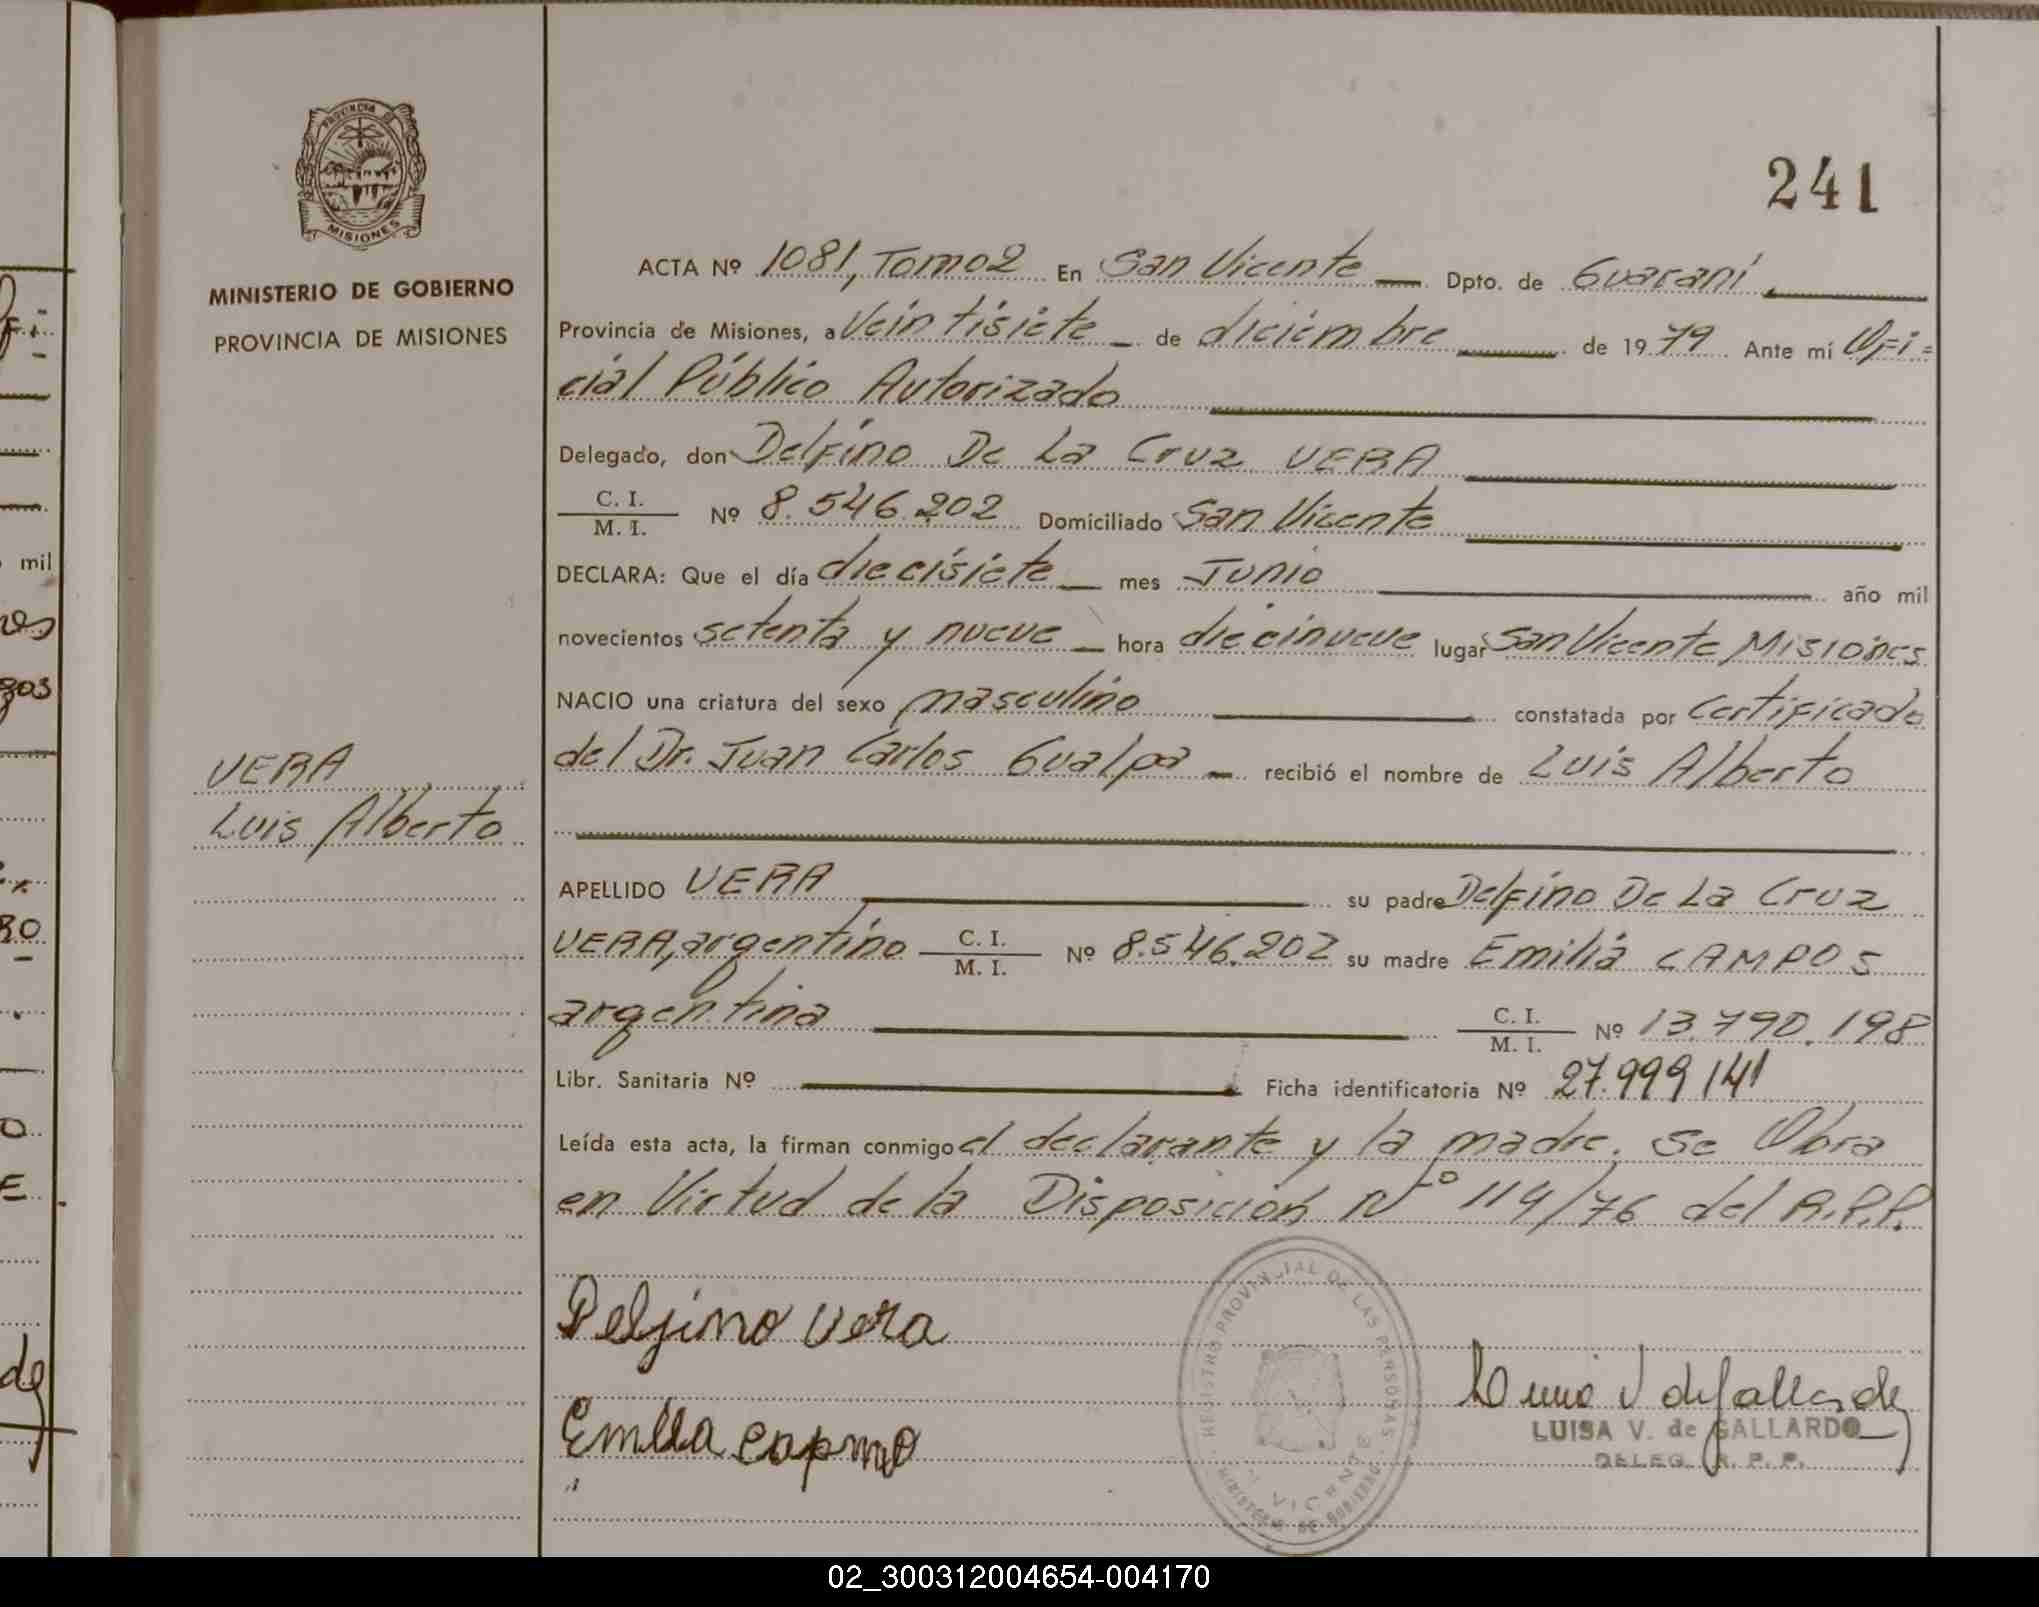 PROVINCIA DE
MISIONES
MINISTERIO DE GOBIERNO
PROVINCIA DE MISIONES
241
ACTA Nº 1081, Tomo 2 En San Vicente Dpto. de Guaraní
Provincia de Misiones, a Veintisiete de diciembre de 1979 Ante mí Ofi=
cial Público Autorizado
Delegado, don Delfino De La Cruz VERA
C. I.
M. I. Nº 8.546.202 Domiciliado San Vicente
DECLARA: Que el día diecisiete mes Junio año mil
novecientos setenta y nueve hora diecinueve lugar San Vicente Misiones
NACIO una criatura del sexo masculino constatada por Certificado
del Dr. Juan Carlos Gualpa recibió el nombre de Luis Alberto
VERA
Luis Alberto
APELLIDO VERA su padre Delfino De La Cruz
VERA, argentino C. I. M. I. Nº 8.546.202 su madre Emilia CAMPOS
argentina C. I. M. I. Nº 13.790.198
Libr. Sanitaria Nº Ficha identificatoria Nº 27.999.141
Leída esta acta, la firman conmigo el declarante y la madre. Se Obra
en Virtud de la Disposición Nº 114/76 del R.P.P.
Delfino Vera
REGISTRO PROVINCIAL DE LAS PERSONAS
VICENTE
MINISTERIO DE GOBIERNO
LUISA V. de GALLARDO
DELEG. R. P. P.
mil
02_300312004654-004170